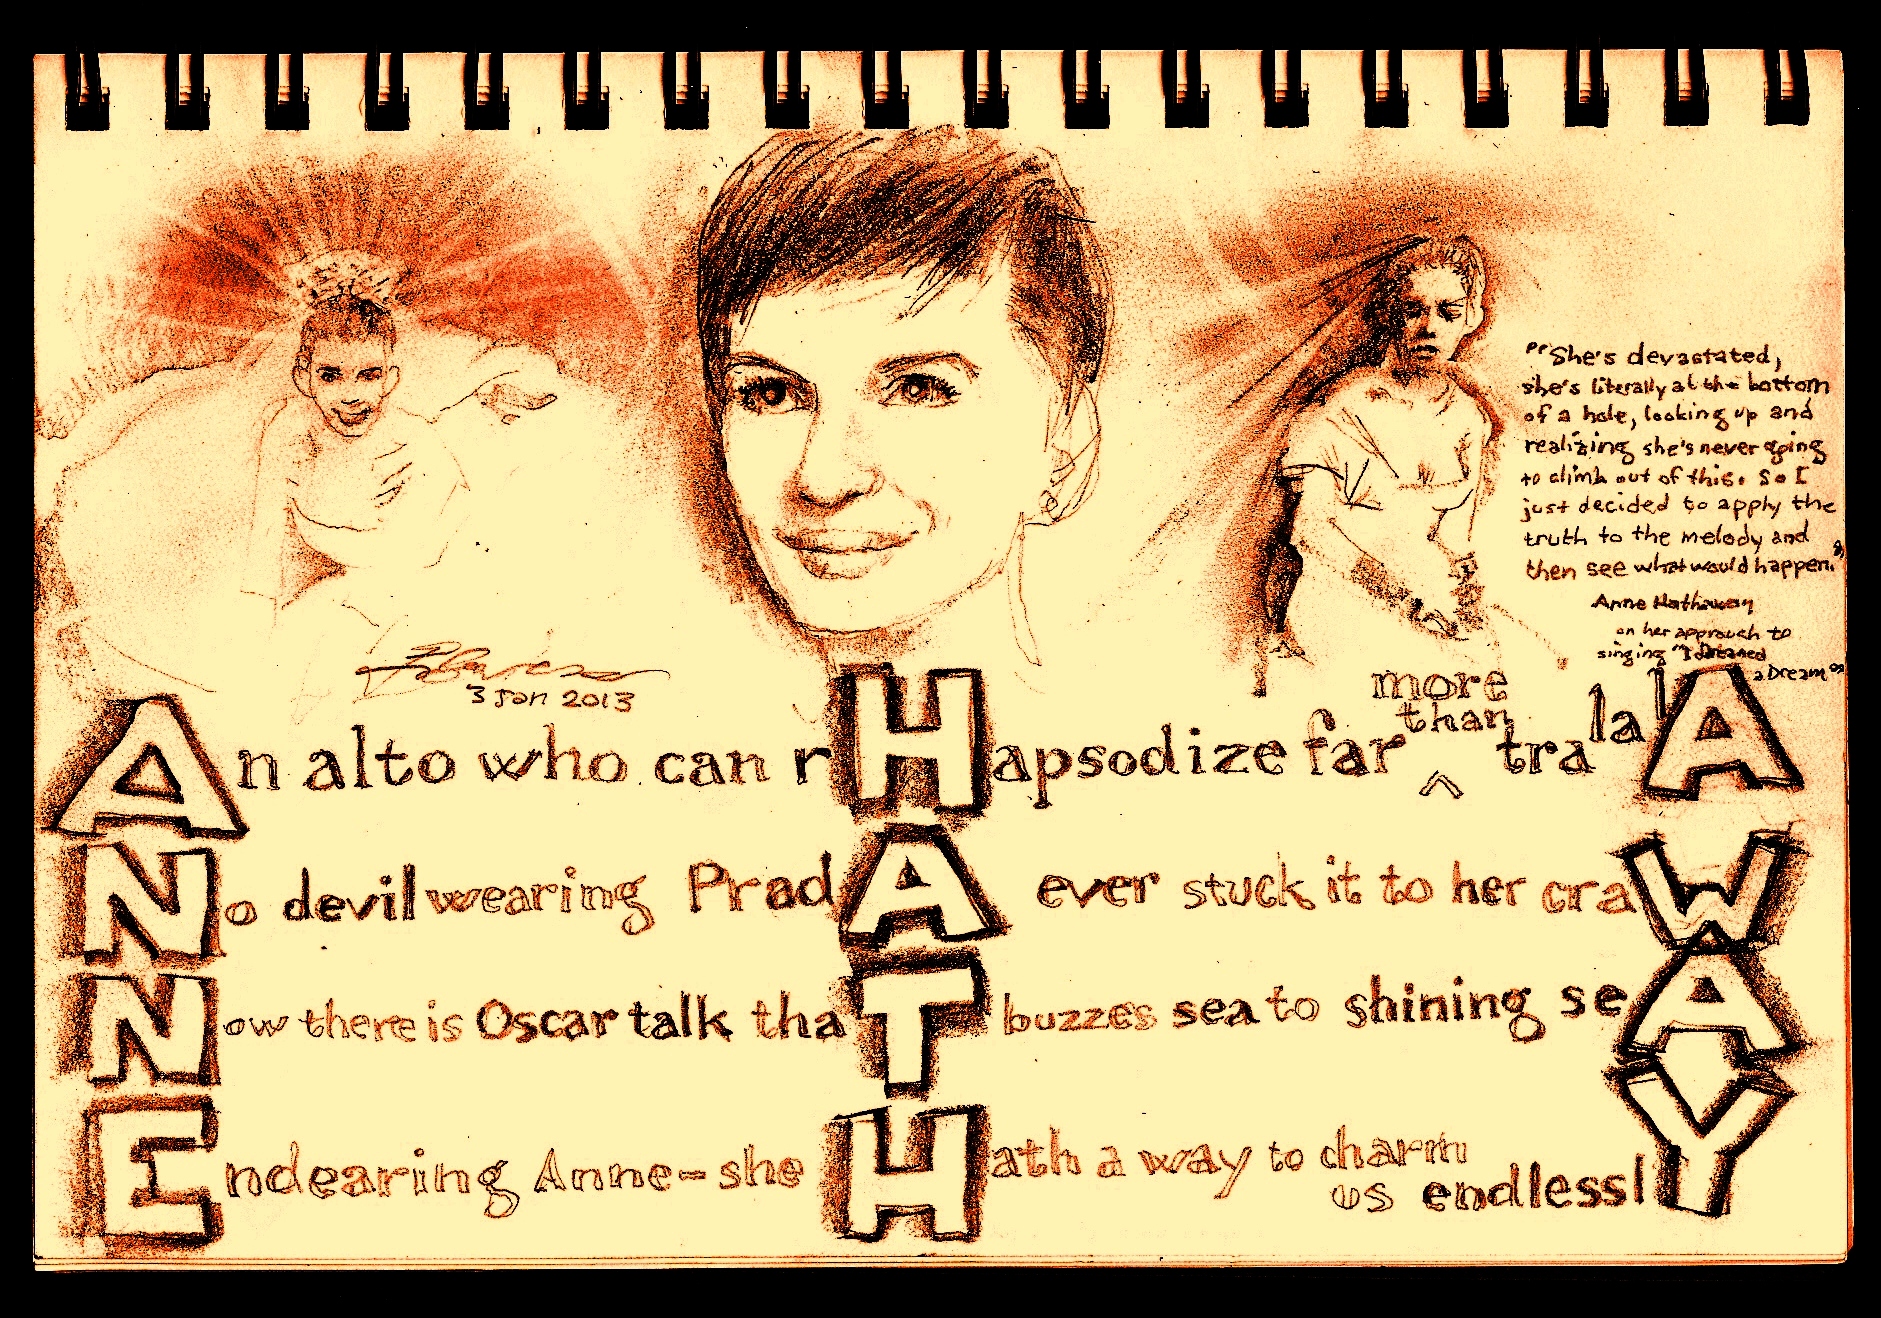 "She's devastated,
she's literally at the bottom
of a hole, looking up and
realizing she's never going
to climb out of this. So I
just decided to apply the
truth to the melody and
then see what would happen."
Anne Hathaway
on her approach to
singing "I Dreamed
a Dream"
3 Jan 2013
An alto who can rHapsodize far ^ more than tra la lA
No devil wearing PradA ever stuck it to her craW
Now there is Oscar talk thaT buzzes sea to shining seA
Endearing Anne-she Hath a way to charm us endlesslY